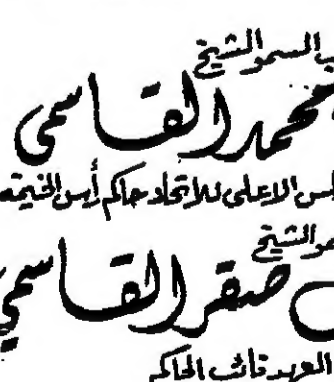 السمو الشيخ
محمد القاسمي
الاعلى للاتحاد حاكم رأس الخيمة
الشيخ
صقر القاسمي
العهد نائب الحاكم